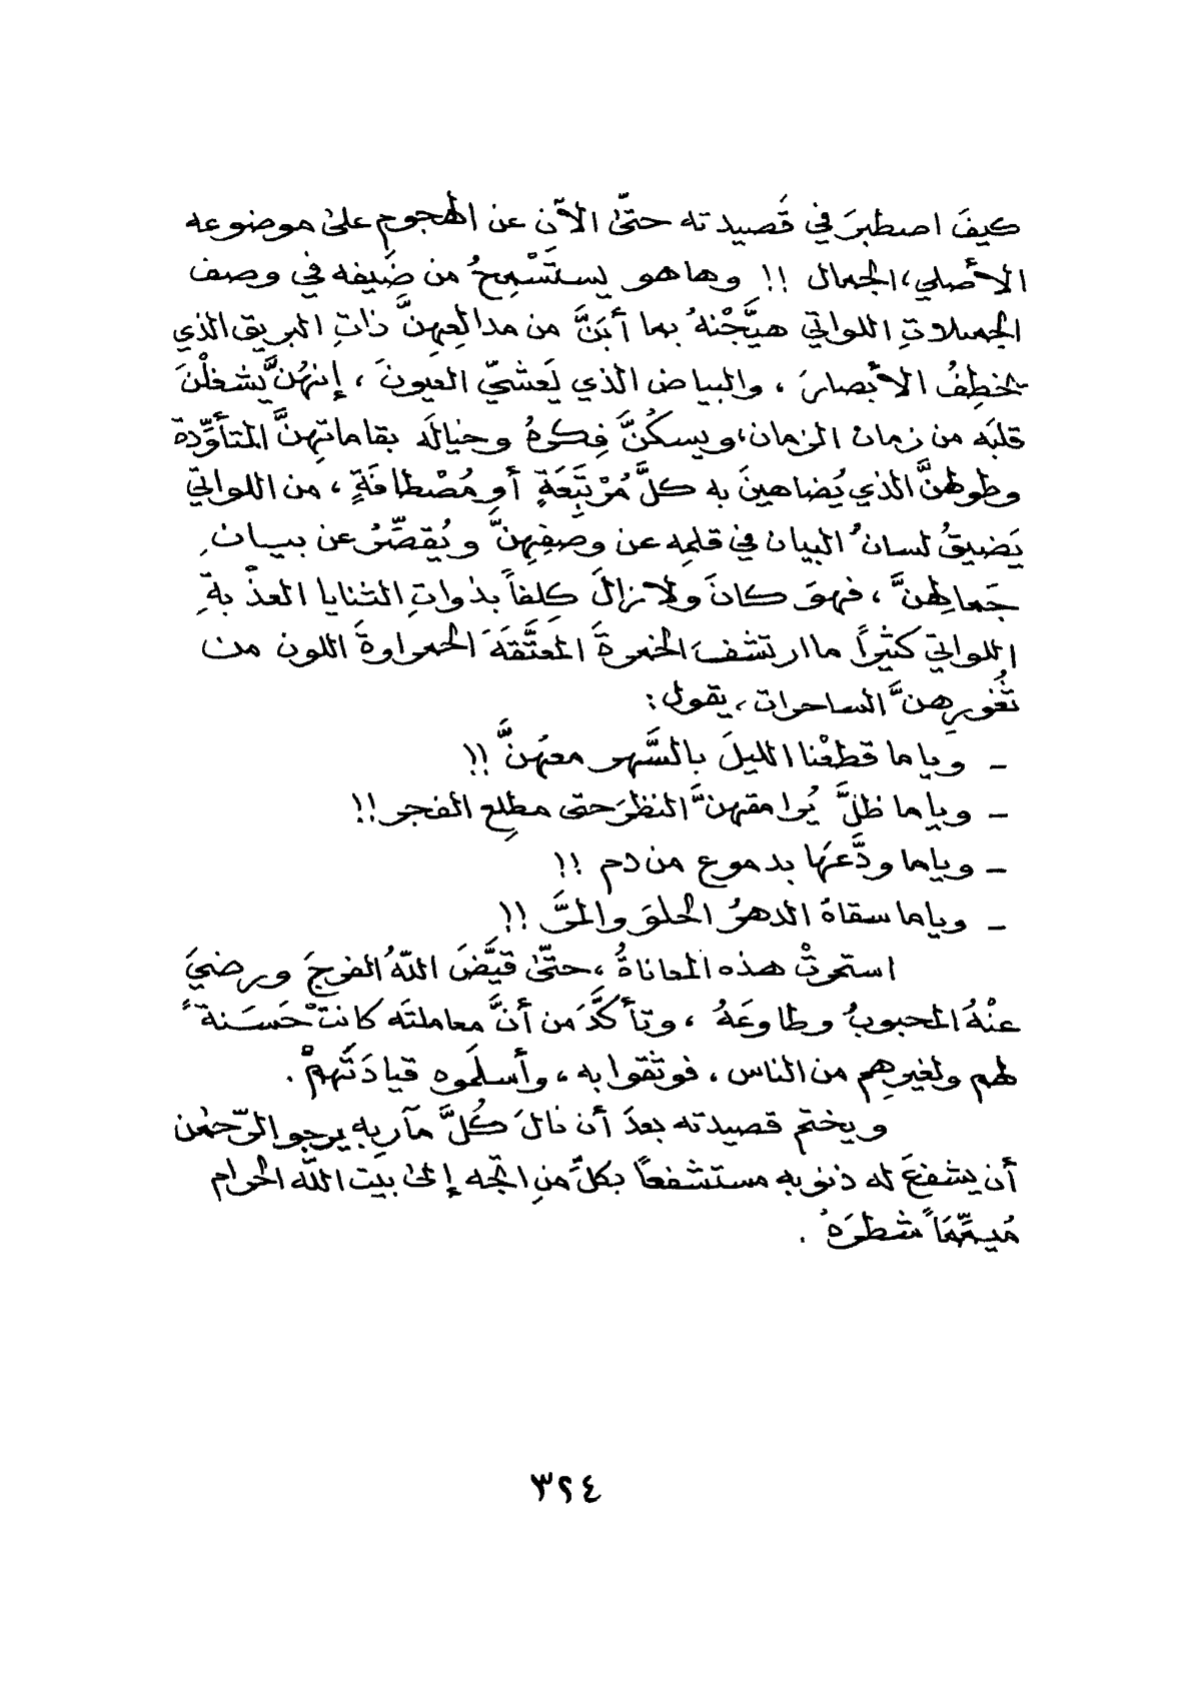 كيفَ اصطبرَ في قَصيدته حتّىٰ الآن عن الهجومِ علىٰ موضوعه
الأصلي، الجمال !! وها هو يستَسْمِحُ من ضَيفه في وصف
الجميلاتِ اللواتي هيَّجْنهُ بما أبَنَّ من مدالعِهِنَّ ذاتِ البريق الذي
يخطِفُ الأبصارَ ، والبياض الذي يَعشيّ العيونَ ، إنهُنَّ يشغلْنَ
قلبَه من زمان الزمان، ويسكُنَّ فِكرهُ وخيالَه بقاماتِهنَّ المتأوِّدة
وطولهنَّ الذي يُضاهينَ به كلَّ مُرْتَبَعَةٍ أو مُصْطافَةٍ ، من اللواتي
يَضيقُ لسانُ البيان في قلمِه عن وصفِهِنَّ ويُقصِّرُ عن بيانِ
جَمالِهنَّ ، فهوَ كانَ ولا زالَ كَلِفاً بذواتِ الثنايا العذْبةِ
اللواتي كثيراً ما ارتشفَ الخمرةَ المعتَّقَةَ الحمراوةَ اللون من
ثُغورِهنَّ الساحرات ، يقول :
– وياما قطعْنا الليلَ بالسَّهر معهُنَّ !!
– وياما ظلَّ يُرامقهنَّ النظرَ حتى مطلِع الفجر !!
– وياما ودَّعَها بدموع من دم !!
– وياما سقاهُ الدهرُ الحلوَ والمرَّ !!
استمرتْ هذه المعاناةُ ، حتّىٰ قيَّضَ اللّهُ الفرجَ ورضيَ
عنْهُ المحبوبُ وطاوعَهُ ، وتأكَّدَ من أنَّ معاملتَه كانتْ حَسَنةً
لهم ولغيرِهِم من الناس ، فوثقوا به ، وأسلَموه قيادَتَهمْ .
ويختم قصيدته بعدَ أن نالَ كُلَّ مآربِهِ يرجو الرّحمٰن
أن يشفعَ له ذنوبه مستشفعاً بكلِّ منِ اتجه إلىٰ بيَت اللّه الحرام
مُيمِّمَاً شطرَهُ .
٣٢٤